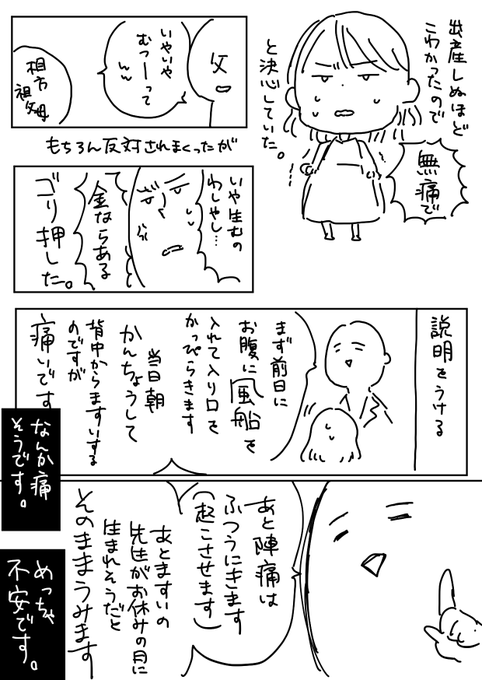 出産しぬほど
こわかったので
無痛で
と決心していた。
父
いやいや
むつーって
ww
相方
祖父母
もちろん反対されまくったが
いや生むの
わしやし…
金ならある
ゴリ押した。
説明をうける
まず前日に
お腹に風船を
入れて入り口を
かっぴらきます
当日朝
かんちょうして
背中からますいする
のですが
痛いです
なんか痛
そうです。
あと陣痛は
ふつうにきます
(起こさせます)
あとますいの
先生がお休みの日に
生まれそうだと
そのままうみます
めっちゃ
不安です。